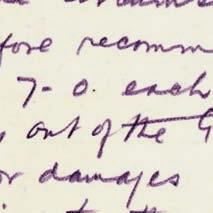 fore recomm
7-0. each
out of the G
or damages